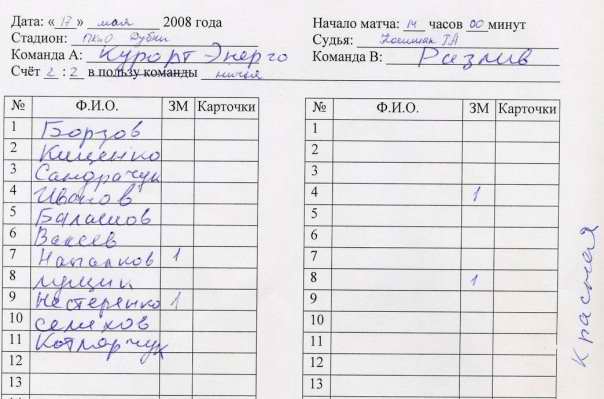 Дата: « 17 » мая 2008 года
Стадион: ПКиО Дубки
Команда А: Курорт Энерго
Счёт 2 : 2 в пользу команды ничья
Начало матча: 14 часов 00 минут
Судья: ГА
Команда В: Разлив
№ Ф.И.О. ЗМ Карточки
1 Борзов
2 Кищенко
3 Сандрачук
4 Иванов
5 Балашов
6 Ваксев
7 Наталков 1
8 Лущик
9 Нестеренко 1
10 Селихов
11 Котлярчук
12
13
№ Ф.И.О. ЗМ Карточки
1
2
3
4 1
5
6
7
8 1
9
10
11
12
13
Красная